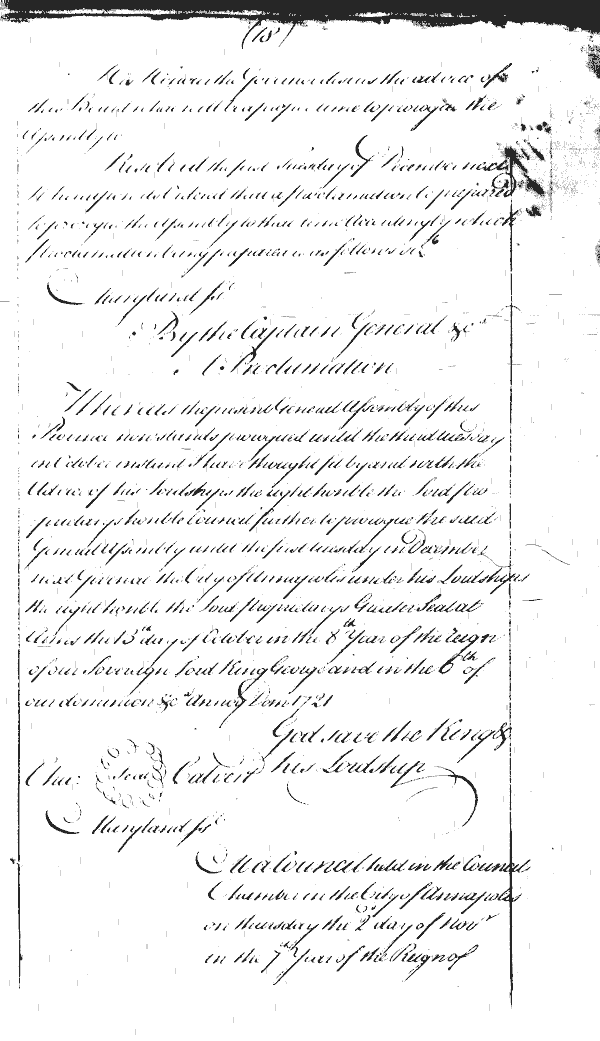 (18)
His Honour the Governour desires the advice of
this Board when will be a proper time to prorogue the
Assembly to
Resolved the first Tuesday of December next
to be appointed & ordered that a Proclamation be prepared
to prorogue the Assembly to that time Accordingly which
Proclamation being prepared is as follows vizt
Maryland ss
By the Captain General &c
A Proclamation
Whereas the present General Assembly of this
Province now stands prorogued until the third tuesday
in October instant I have thought fit by and with the
Advice of his Lordships the right honble the Lord Pro-
prietarys honble Council further to prorogue the said
General Assembly until the first tuesday in December
next Given at the City of Annapolis under his Lordships
the right honble the Lord Proprietarys Greater Seal at
Arms the 13th day of October in the 8th Year of the reign
of our Sovereign Lord King George and in the 6th of
our dominion &c Annoq Dom 1721
God save the King &
Cha: Seal Calvert his Lordship
Maryland ss
At a Council held in the Council
Chamber in the City of Annapolis
on thursday the 2d day of Novr
in the 7th Year of the Reign of